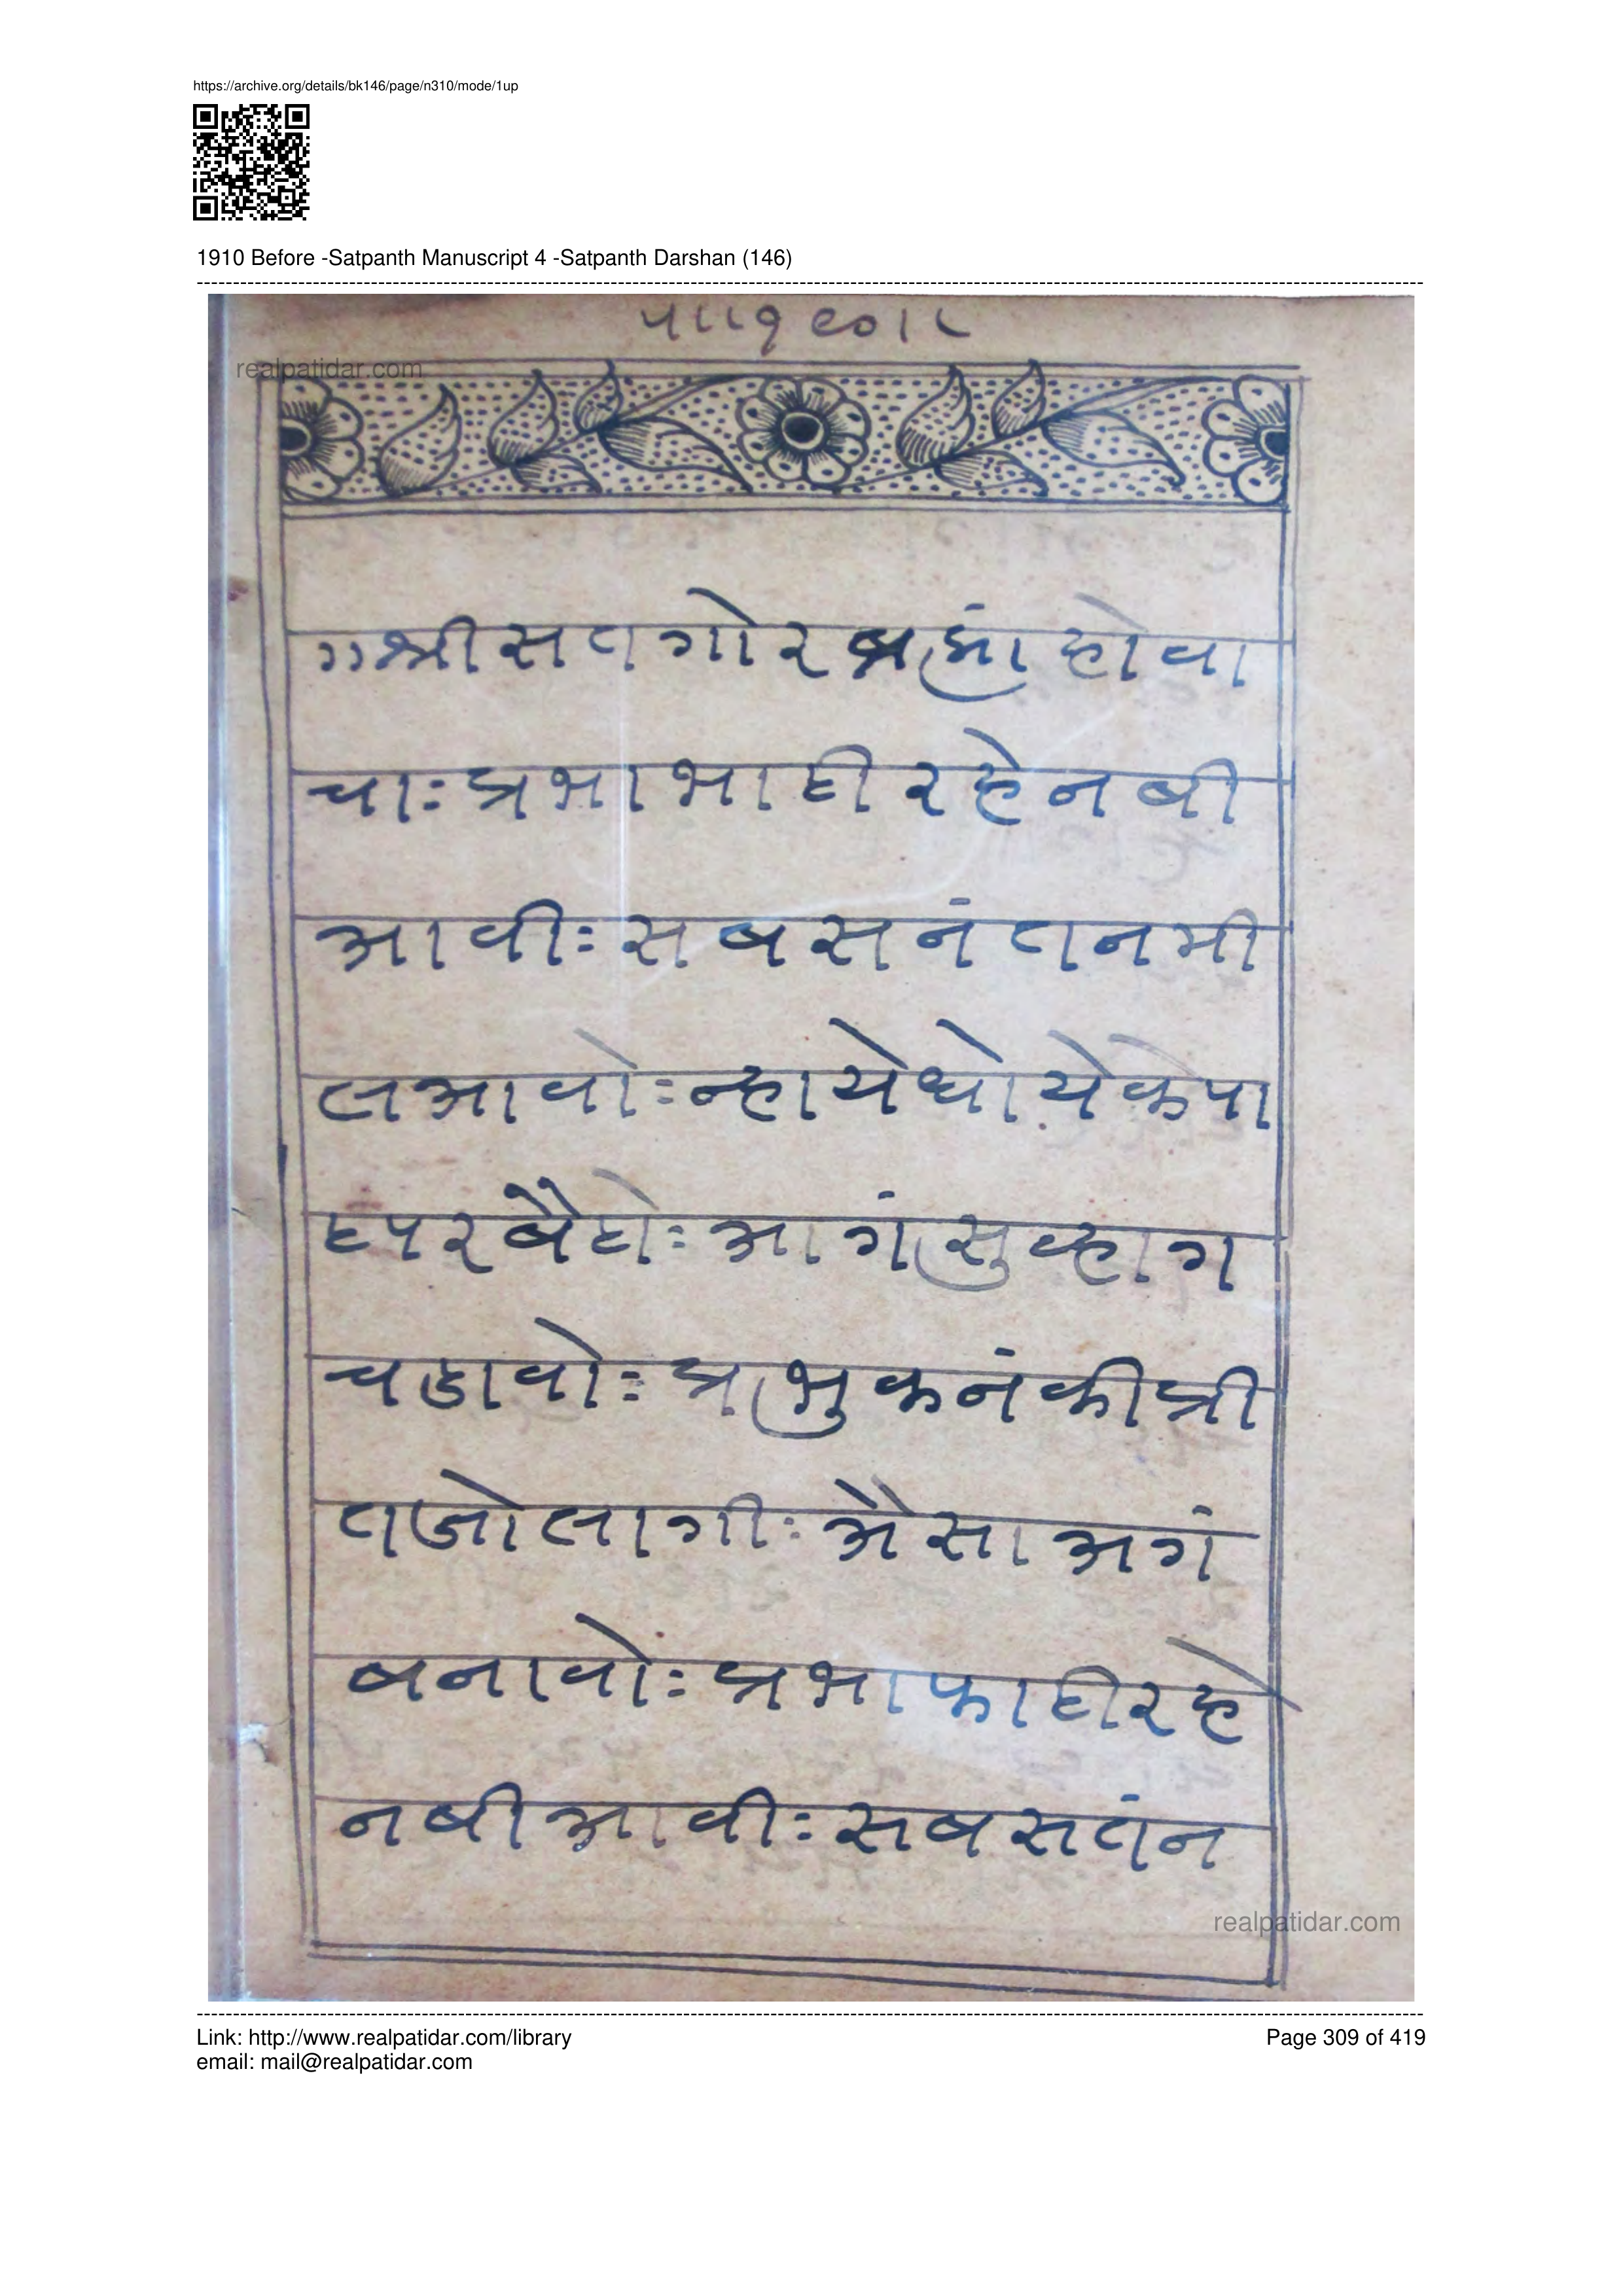 https://archive.org/details/bk146/page/n310/mode/1up
1910 Before -Satpanth Manuscript 4 -Satpanth Darshan (146)
realpatidar.com
श्री सतगोर ब्रह्मां होवा
चाः प्रभा भाही रहे नबी
आवीः सब सनंतन मी
लआवोः न्हायेधोयेके पा
टपर बैठोः आगं सुव्हाग
चडावोः प्रभुकनंकी प्री
तजो लागीः अैसा अगं
बनावोः प्रभा फाही रहे
नबी आवीः सब सतंन
realpatidar.com
Link: http://www.realpatidar.com/library
Page 309 of 419
email: mail@realpatidar.com